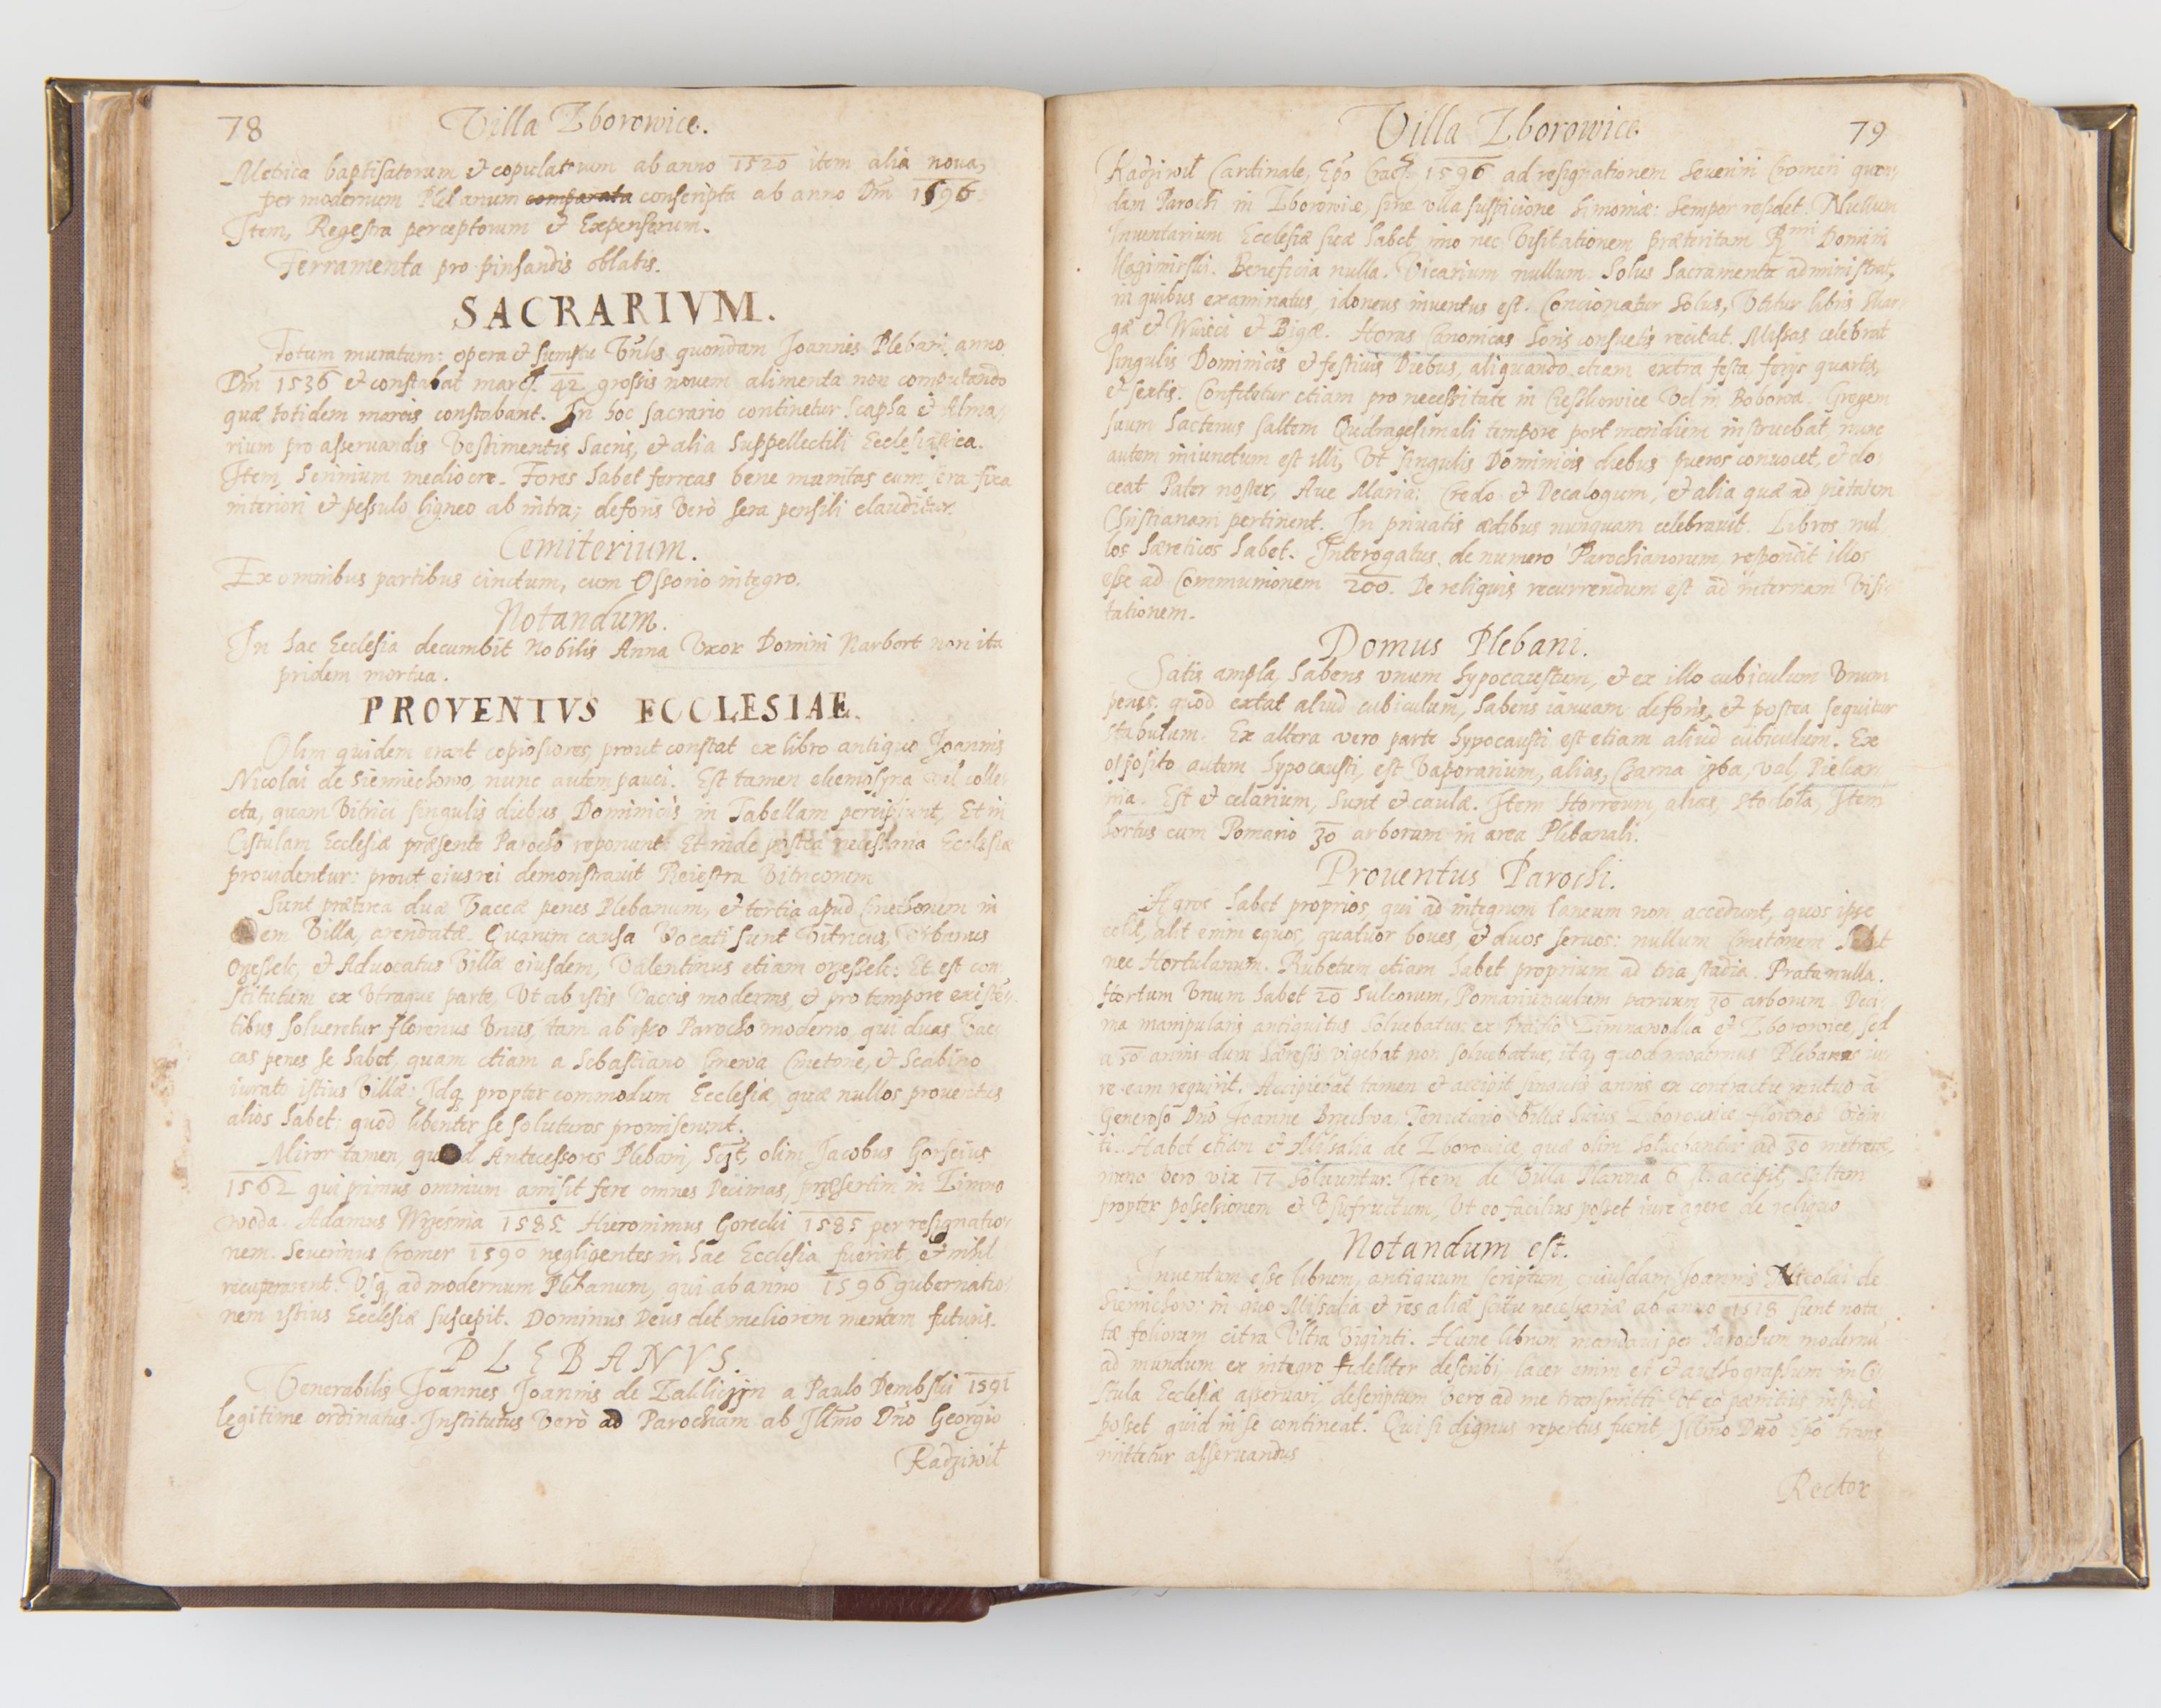 78 Villa Zborowice.
Metrica baptisatorum et copulatorum ab anno 1520 item alia noua,
per modernum Plebanum comparata conscripta ab anno Dni 1596.
Item, Regestra perceptorum et Expensorum.
Ferramenta pro pinsandis oblatis.
SACRARIVM.
Totum muratum: opera et sumptu Vnlis quondam Joannis Plebani anno
Dni 1536 et constabat marc. 42 grossis novem, alimenta non computando
quæ totidem marcis constabant. In hoc sacrario continetur scapha et Alma,
rium pro asseruandis Vestimentis Sacris, et alia Suppellectili Ecclesiastica.
Item, Scrinium mediocre. Fores habet ferreas bene munitas cum sera fixa
interiori et pessulo ligneo ab intra; deforis Verò sera pensili clauditur.
Cemiterium.
Ex omnibus partibus cinctum, cum Ossorio integro.
Notandum.
In hac Ecclesia decumbit Nobilis Anna Vxor Domini Narbort non ita
pridem mortua.
PROVENTVS ECCLESIAE.
Olim quidem erant copiosiores, prout constat ex libro antiquo Joannis
Nicolai de Siemiechowo, nunc autem pauci. Est tamen elemosyna vel colle,
cta, quam Vitrici singulis diebus Dominicis in Tabellam percipiunt, Et in
Cistulam Ecclesiæ præsente Parocho reponunt: Et inde postea necessaria Ecclesiæ
prouidentur: prout eius rei demonstrauit Reiestra Vitricorum
Sunt præterea duæ Vaccæ penes Plebanum, et tertia apud Cmethonem in
em Villa, arendatæ. Quarum causa Vocati sunt Vitricus, Vrbanus
Orzessek, et Aduocatus Villæ eiusdem, Valentinus etiam orzessek: Et est con
stitutum ex Vtraque parte, Vt ab istis Vaccis modernis, et pro tempore existen,
tibus solueretur florenus Vnus, tam ab ipso Parocho moderno, qui duas Vac
cas penes se habet, quam etiam a Sebastiano Gnewa Cmetone, et Scabino
iurato istius Villæ: Idq propter commodum Ecclesiæ quæ nullos prouentus
alios habet: quod libenter se soluturos promiserunt.
Miror tamen, quod Antecessores Plebani, Scit, olim Jacobus Gorscius
1562 qui primus omnium amisit fere omnes Decimas, præsertim in Zimno
woda. Adamus Wrzesnia 1585. Hieronimus Gorecki 1585 per resignatio
nem. Seuerinus Cromer 1590 negligentes in hac Ecclesia fuerint, et nihil
recuperarent. Vsq ad modernum Plebanum, qui ab anno 1596 gubernatio
nem istius Ecclesiæ suscepit. Dominus Deus det meliorem mentem futuris.
PLEBANVS.
Venerabilis Joannes Joannis de Zakliczin a Paulo Dembski 1591
legitime ordinatus. Institutus Verò ad Parochiam ab Illmo Dno Georgio
Radziwił
Villa Zborowice. 79
Radziwił Cardinale, Epo Crac. 1596 ad resignationem Seuerini Cromeri quon,
dam Parochi in Zborowice, sine vlla suspicione simoniæ: Semper residet. Nullum
Inuentarium Ecclesiæ suæ habet, imo nec Visitationem præteritam Rmi Domini
Kazimirski. Beneficia nulla. Vicarium nullum. Solus Sacramenta administrat,
in quibus examinatus, idoneus inuentus est. Concionatur Solus, Vtitur libris Skar
gæ et Wuieci et Bigæ. Horas Canonicas horis consuetis recitat. Missas celebrat
singulis Dominicis et festiuis Diebus, aliquando etiam extra festa ferijs quartis,
et sextis. Confitetur etiam pro necessitate in Cieszkowice Vel in Bobowa. Gregem
suum hactenus saltem Qudragesimali tempore post meridiem instruebat, nunc
autem iniunctum est illi, Vt singulis Dominicis diebus pueros conuocet, et do
ceat Pater noster, Aue Maria: Credo et Decalogum, et alia quæ ad pietatem
Christianam pertinent. In priuatis ædibus nunquam celebrauit. Libros nul
los hæreticos habet. Interogatus de numero Parochianorum, respondit illos
esse ad Communionem 200. De reliquis recurrendum est ad internam Visi
tationem.
Domus Plebani.
Satis ampla, habens vnum hypocaustum, et ex illo cubiculum Vnum
penes quod extat aliud cubiculum, habens ianuam deforis, et postea sequitur
stabulum. Ex altera vero parte hypocausti est etiam aliud cubiculum. Ex
opposito autem hypocausti, est Vaporarium, alias, Czarna izba, vel, Piekar
nia. Est et celarium, sunt et caulæ. Item Horreum, alias, Stodoła, Item
hortus cum Pomario 30 arborum in area Plebanali.
Prouentus Parochi.
Agros habet proprios, qui ad integrum laneum non accedunt, quos ipse
colit, alit enim equos, quatuor boues, et duos seruos: nullum Cmetonem
nec Hortulanum. Rubetum etiam habet proprium ad tria stadia. Prata nulla.
Hortum Vnum habet 20 Sulcorum, Pomariunculum paruum 30 arborum. Deci
ma manipularis antiquitus soluebatur ex Prædio Zimnawodka et Zborowice, sed
a 50 annis dum hæresis vigebat non soluebatur, ita, quod modernus Plebanus iu
re eam requirit. Accipiebat tamen et accipit singulis annis ex contractu mutuo a
Generoso Dno Joanne Tenutario Villæ huius Zborowice florenos Vigin
ti. Habet etiam et Missalia de Zborowice, quæ olim soluebantur ad 30 metretas,
nunc vero vix 17 soluuntur. Item de Villa Planna 6 fl. accipit, saltem
propter possessionem et Vsufructum, Vt eo facilius posset iure agere de reliquo
Notandum est.
Inuentum esse librum, antiquum scriptum, cuiusdam Joannis Nicolai de
Siemichow: in quo Missalia et res aliæ scitu necessariæ ab anno 1518 sunt nota
tæ foliorum citra Vltra Viginti. Hunc librum mandaui per Parochum modernu
ad mundum ex integro fideliter describi, lacer enim est et authographum in Ci
stula Ecclesiæ asseruari, descriptum vero ad me transmitti Vt eo penitius inspici
posset quid in se contineat. Qui si dignus repertus fuerit, Illmo Dno Epo trans
mittetur asseruandus
Rector